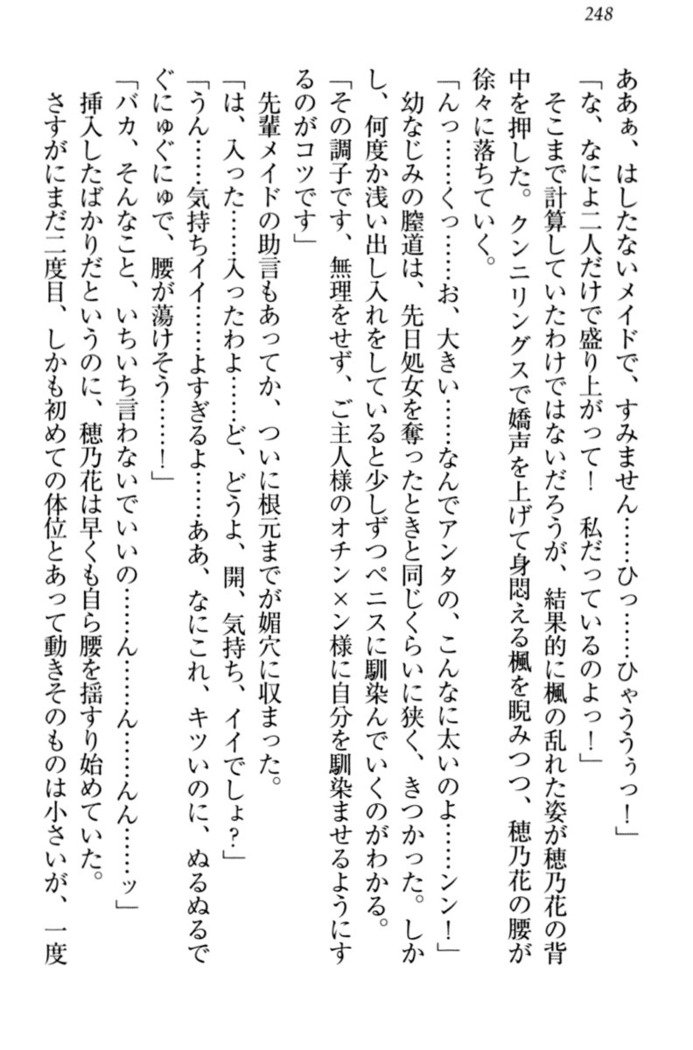 248
ああぁ、はしたないメイドで、すみません……ひっ……ひゃううぅっ！」
「な、なによ二人だけで盛り上がって！　私だっているのよっ！」
　そこまで計算していたわけではないだろうが、結果的に楓の乱れた姿が穂乃花の背
中を押した。クンニリングスで嬌声を上げて身悶える楓を睨みつつ、穂乃花の腰が
徐々に落ちていく。
「んっ……くっ……お、大きい……なんでアンタの、こんなに太いのよ……ンン！」
　幼なじみの膣道は、先日処女を奪ったときと同じくらいに狭く、きつかった。しか
し、何度か浅い出し入れをしていると少しずつペニスに馴染んでいくのがわかる。
「その調子です、無理をせず、ご主人様のオチン×ン様に自分を馴染ませるようにす
るのがコツです」
　先輩メイドの助言もあってか、ついに根元までが媚穴に収まった。
「は、入った……入ったわよ……ど、どうよ、開、気持ち、イイでしょ？」
「うん……気持ちイイ……よすぎるよ……ああ、なにこれ、キツいのに、ぬるぬるで
ぐにゅぐにゅで、腰が蕩けそう……！」
「バカ、そんなこと、いちいち言わないでいいの……ん……ん……んん……ッ」
　挿入したばかりだというのに、穂乃花は早くも自ら腰を揺すり始めていた。
　さすがにまだ二度目、しかも初めての体位とあって動きそのものは小さいが、一度